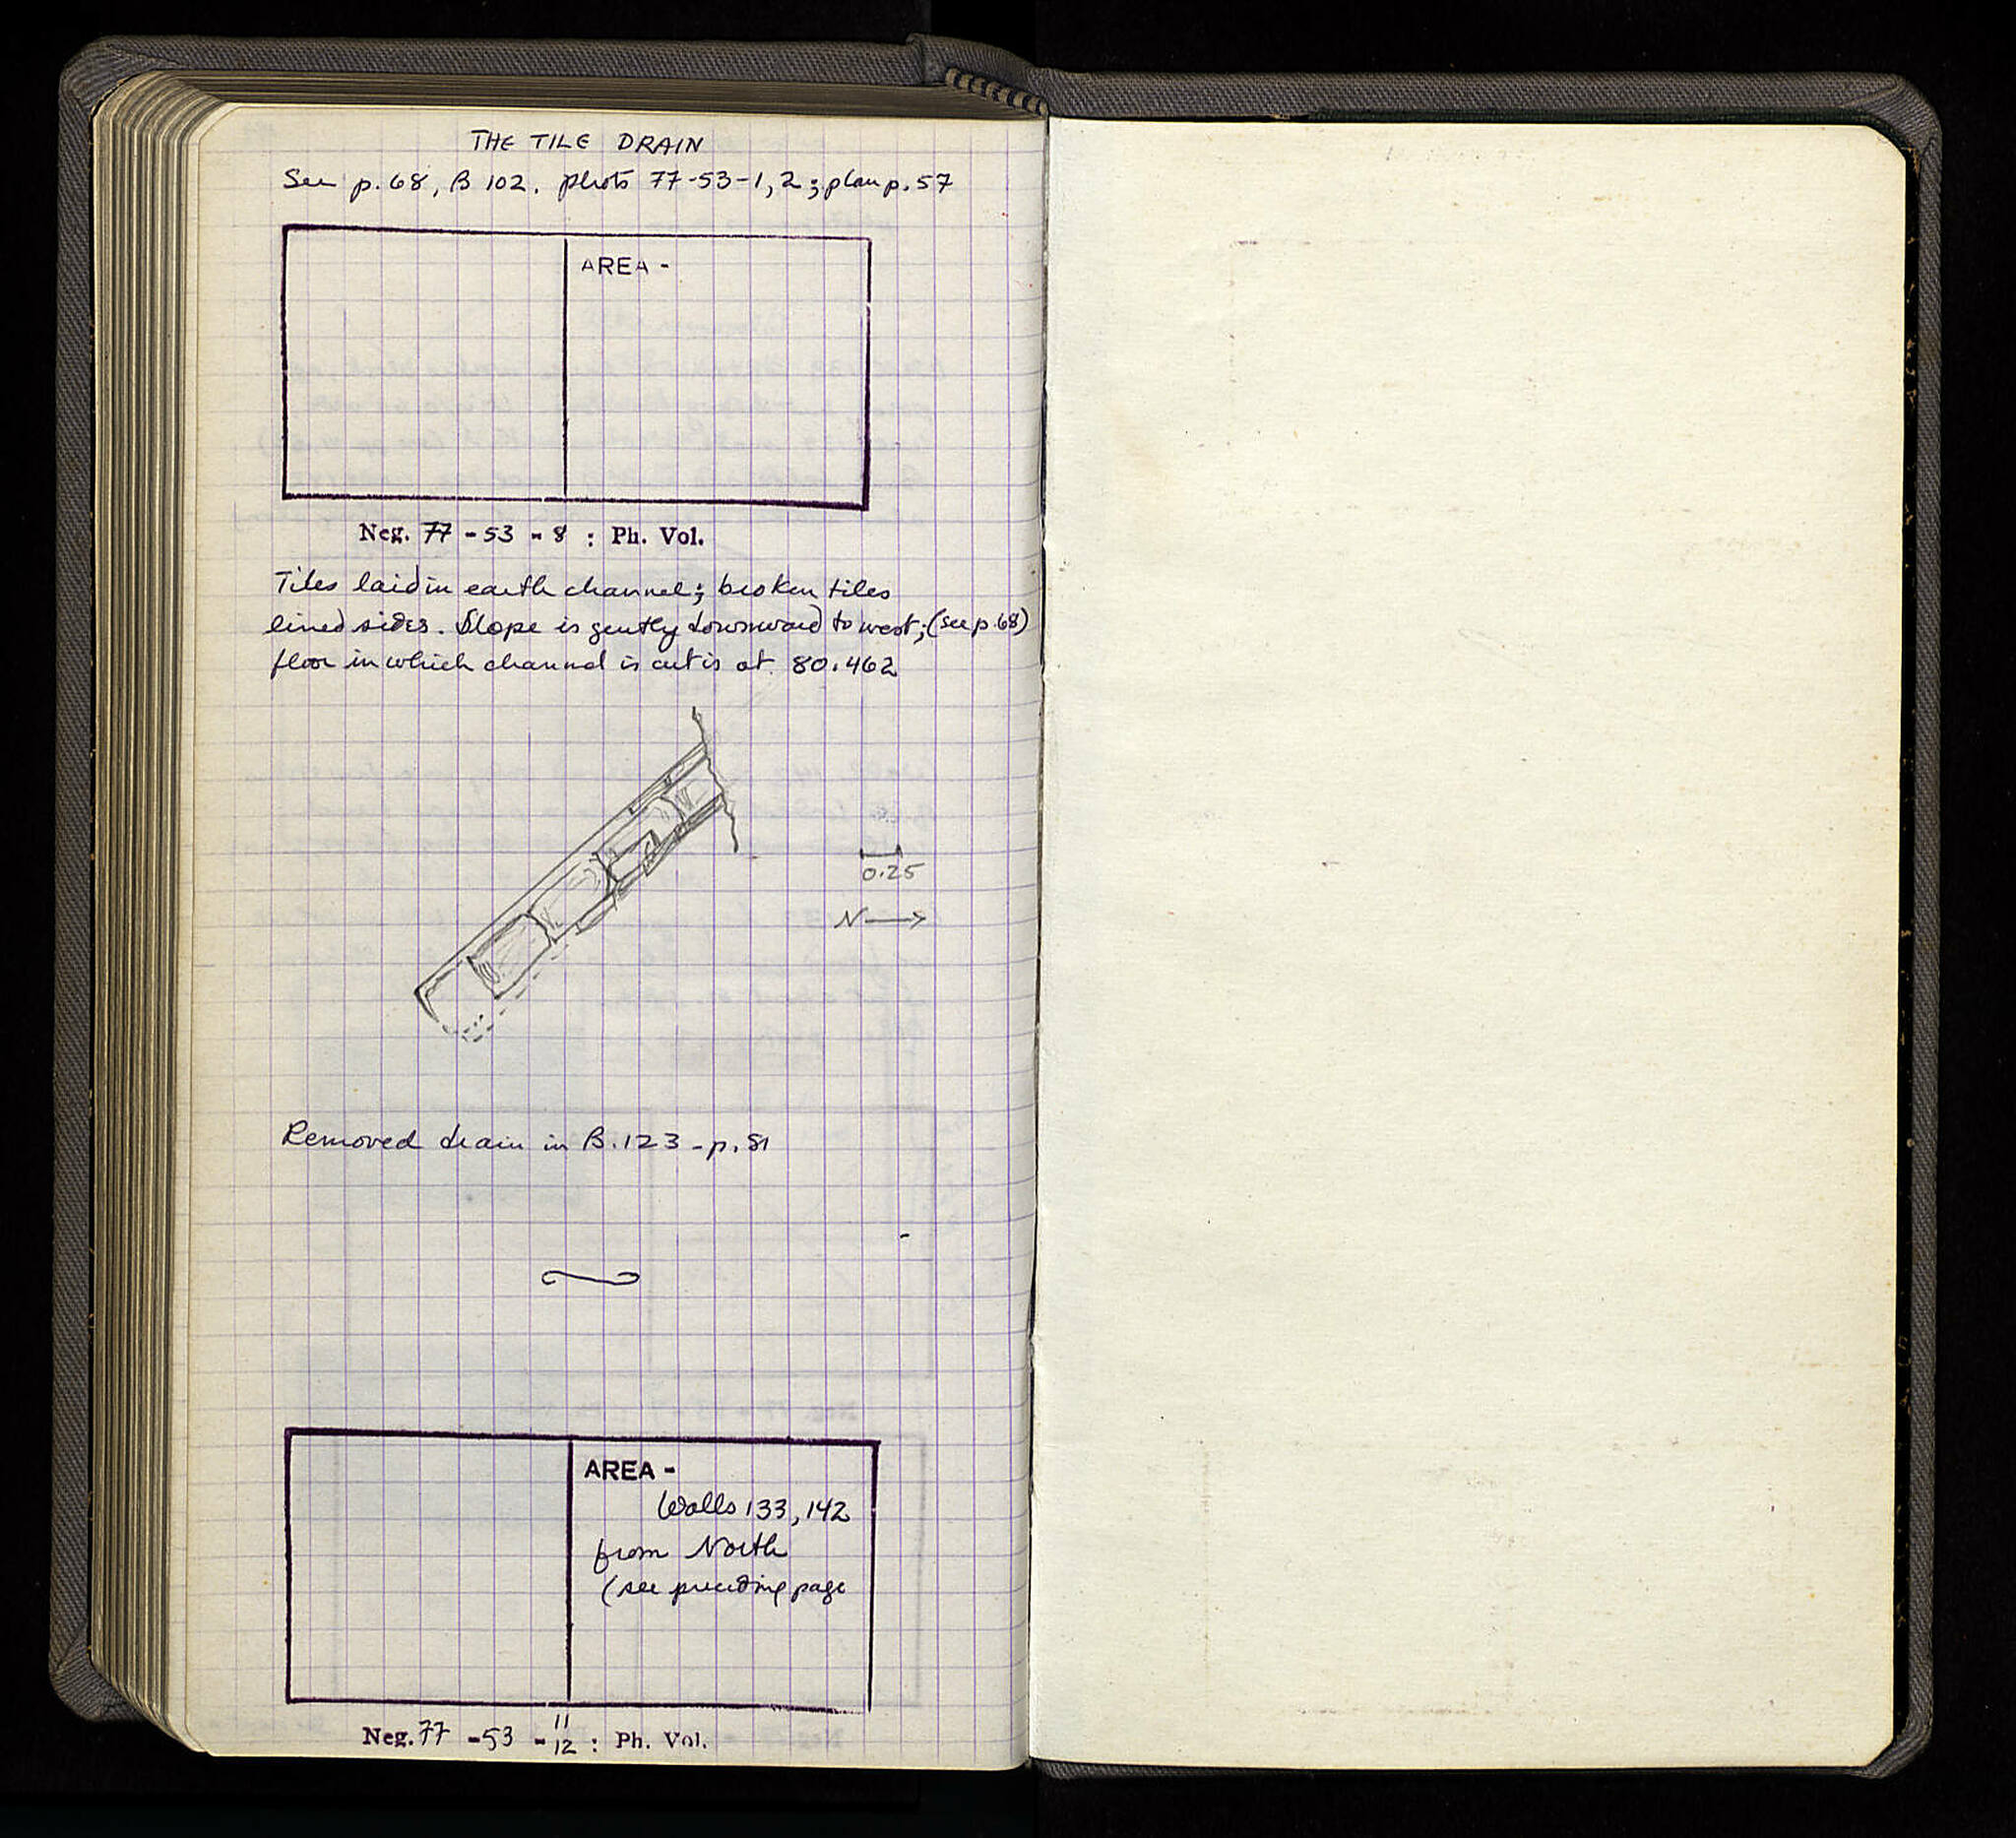 THE TILE DRAIN
See p. 68, B 102. photo 77-53-1, 2; plan p. 57
AREA -
Neg. 77 - 53 - 8 : Ph. Vol.
Tiles laid in earth channel; broken tiles
lined sides. Slope is gently downward to west; (see p. 68)
floor in which channel is cut is at 80.462
0.25
N
Removed drain in B. 123 - p. 81
AREA -
Walls 133, 142
from North
(see preceding page
Neg. 77 - 53 - 11
12 : Ph. Vol.